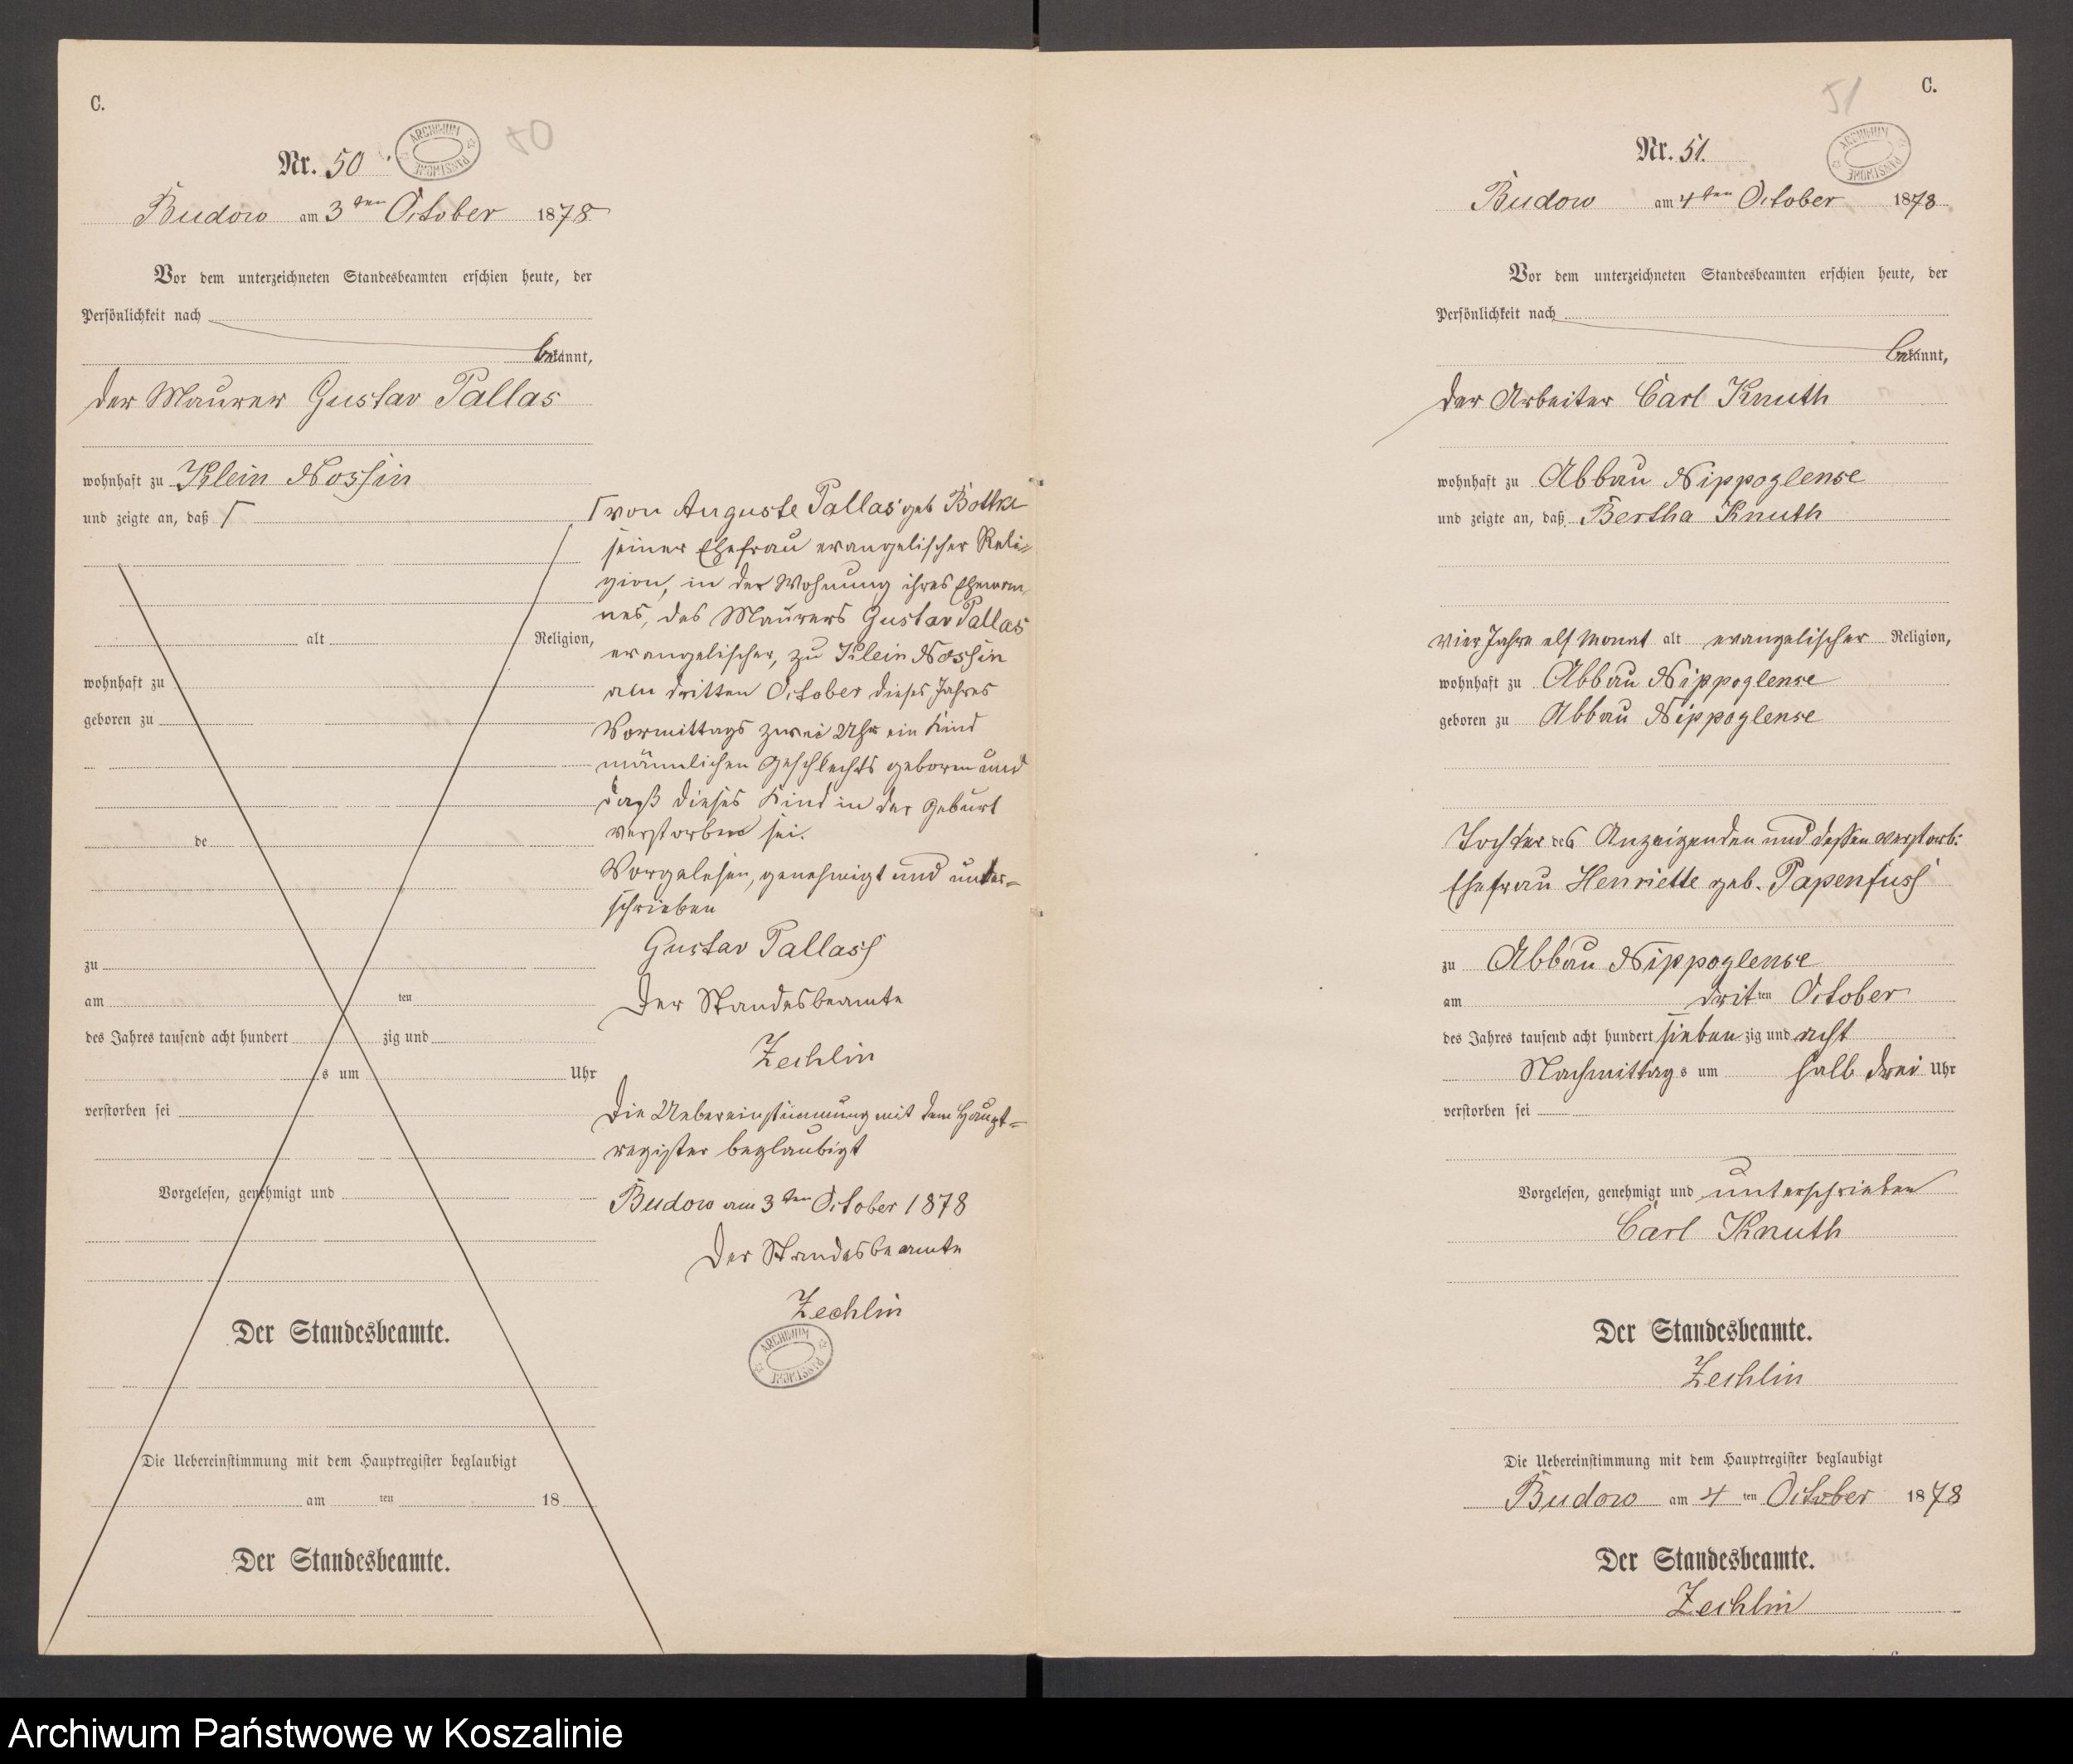 C.
Nr. 50
ARCHIWUM PAŃSTWOWE
50
Budow am 3ten October 1878
Vor dem unterzeichneten Standesbeamten erschien heute, der
Persönlichkeit nach
bekannt,
der Maurer Gustav Pallas
wohnhaft zu Klein Nossin
und zeigte an, daß Γ
alt Religion,
wohnhaft zu
geboren zu
de
zu
am ten
des Jahres tausend acht hundert zig und
s um Uhr
verstorben sei
Vorgelesen, genehmigt und
Der Standesbeamte.
Die Uebereinstimmung mit dem Hauptregister beglaubigt
am ten 18
Der Standesbeamte.
Γ von Auguste Pallas geb Bottke
seiner Ehefrau evangelischer Reli=
gion, in der Wohnung ihres Eheman
nes, des Maurers Gustav Pallas
evangelischer, zu Klein Nossin
am dritten October dieses Jahres
Vormittags zwei Uhr ein Kind
männlichen Geschlechts geboren und
daß dieses Kind in der Geburt
verstorben sei.
Vorgelesen, genehmigt und unter=
schrieben
Gustav Pallass
Der Standesbeamte
Zechlin
Die Uebereinstimmung mit dem Haupt=
register beglaubigt
Budow am 3ten October 1878
Der Standesbeamte
Zechlin
ARCHIWUM PAŃSTWOWE
C.
51
Nr. 51.
ARCHIWUM PAŃSTWOWE
Budow am 4ten October 1878
Vor dem unterzeichneten Standesbeamten erschien heute, der
Persönlichkeit nach
bekannt,
der Arbeiter Carl Knuth
wohnhaft zu Abbau Nippoglense
und zeigte an, daß Bertha Knuth
vier Jahre elf Monat alt evangelischer Religion,
wohnhaft zu Abbau Nippoglense
geboren zu Abbau Nippoglense
Tochter des Anzeigenden und dessen verstorb:
Ehefrau Henriette geb. Papenfuss
zu Abbau Nippoglense
am dritten October
des Jahres tausend acht hundert siebenzig und acht
Nachmittags um halb drei Uhr
verstorben sei
Vorgelesen, genehmigt und unterschrieben
Carl Knuth
Der Standesbeamte.
Zechlin
Die Uebereinstimmung mit dem Hauptregister beglaubigt
Budow am 4 ten October 1878
Der Standesbeamte.
Zechlin
Archiwum Państwowe w Koszalinie